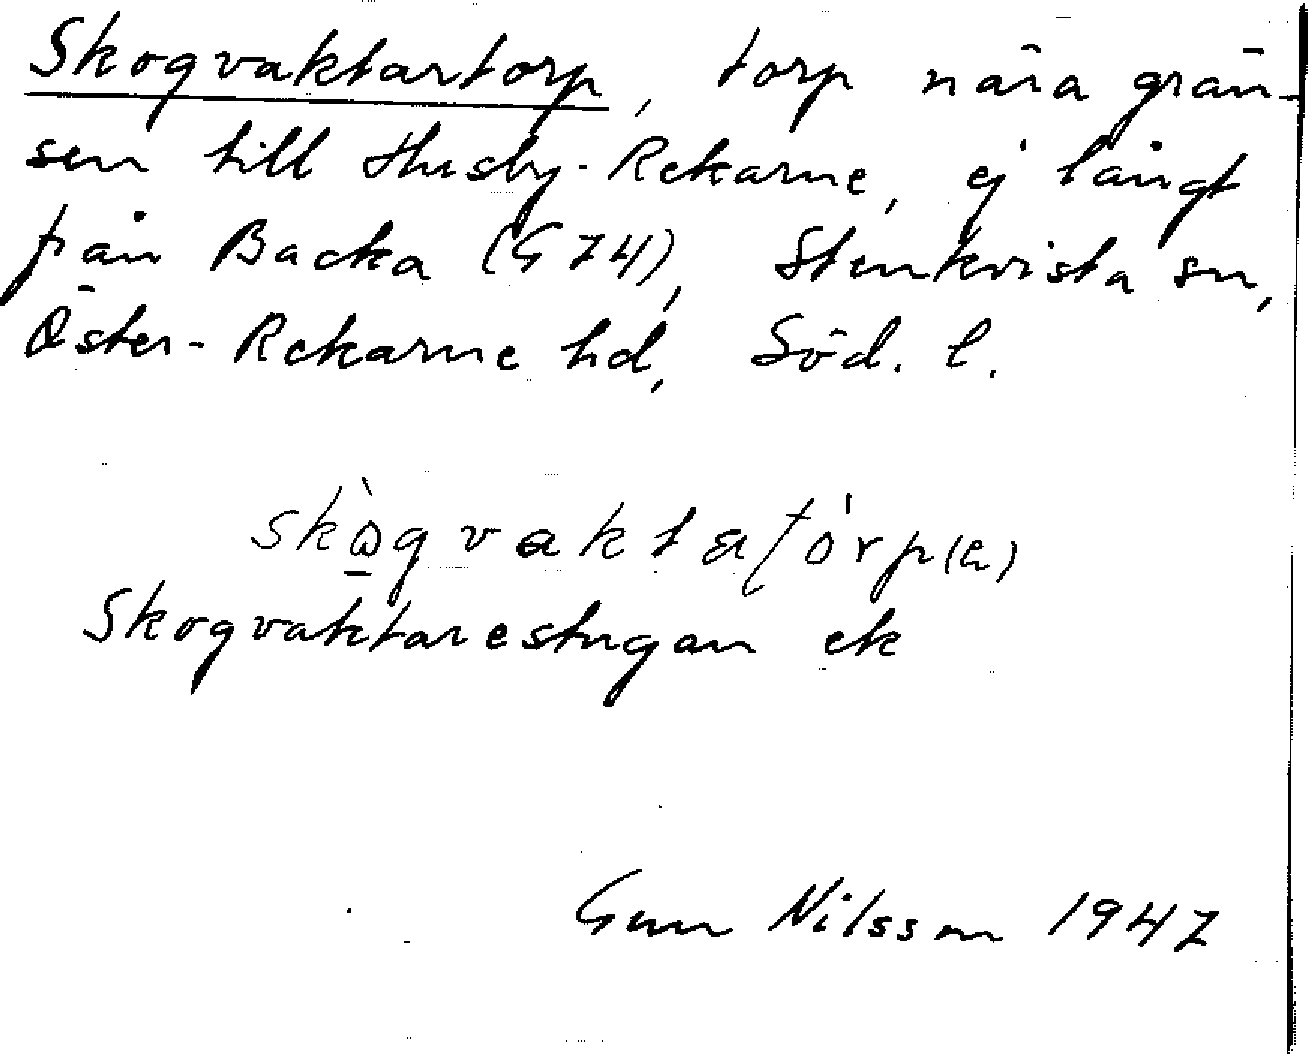 Skogvaktartorp, torp nära grän-
sen till Husby-Rekarne, ej långt
från Backa (G 74), Stenkvista sn,
Öster-Rekarne hd, Söd. l.
skògvaktatórp(a)
Skogvaktarestugan ek
Gun Nilsson 1947